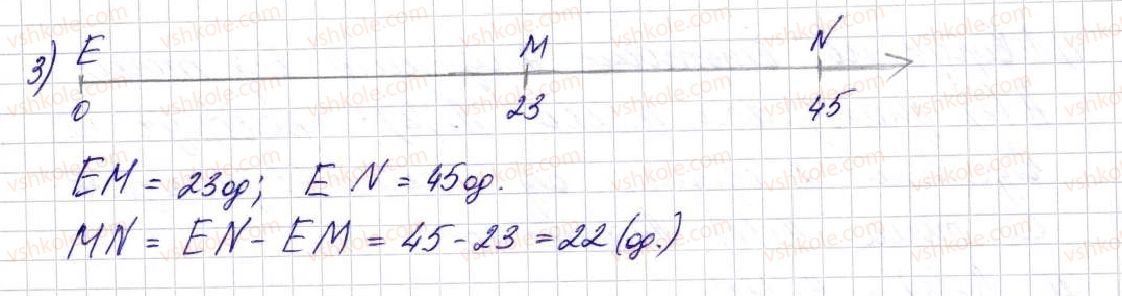 3) E M N
0 23 45
EM = 23од; EN = 45од.
MN = EN - EM = 45 - 23 = 22 (од.)
vshkole.com